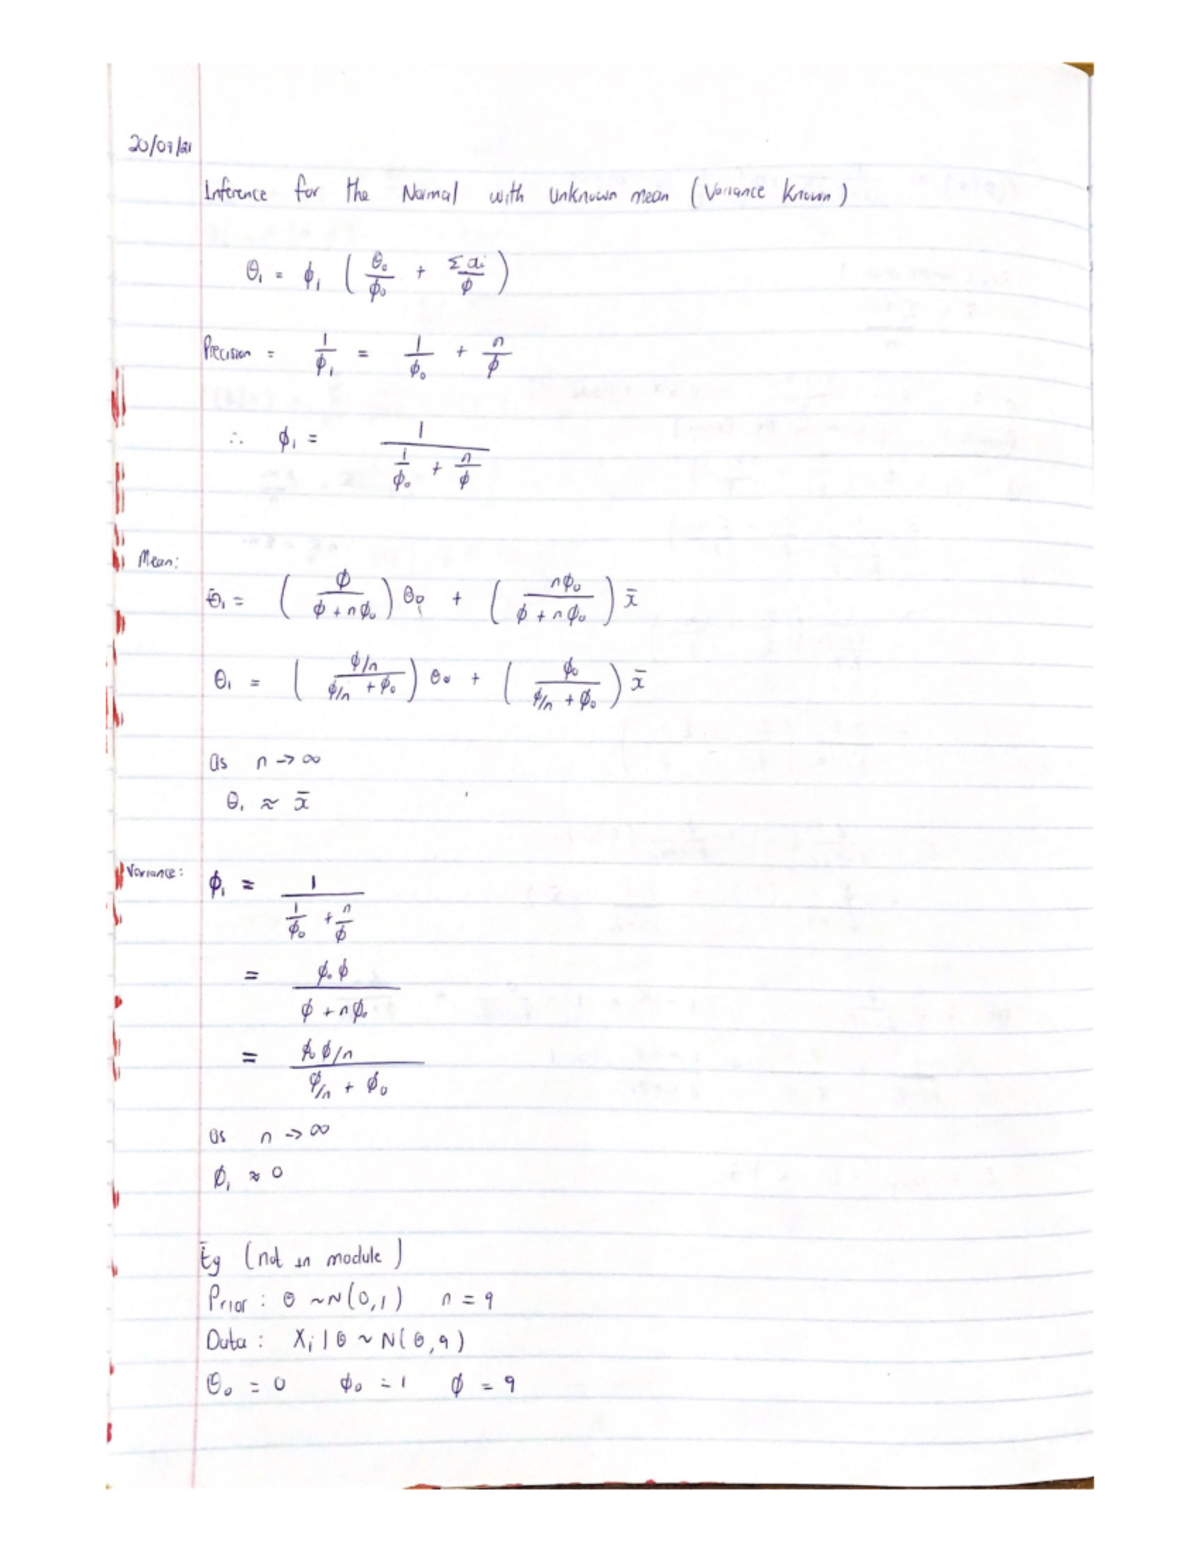 20/09/21
Inference for the Normal with Unknown mean (Variance Known)
θ₁ = ϕ₁ ( θ₀/ϕ₀ + Σxᵢ/ϕ )
Precision = 1/ϕ₁ = 1/ϕ₀ + n/ϕ
∴ ϕ₁ = 1 / ( 1/ϕ₀ + n/ϕ )
Mean:
θ₁ = ( ϕ / (ϕ + nϕ₀) ) θ₀ + ( nϕ₀ / (ϕ + nϕ₀) ) x̄
θ₁ = ( ϕ/n / (ϕ/n + ϕ₀) ) θ₀ + ( ϕ₀ / (ϕ/n + ϕ₀) ) x̄
as n → ∞
θ₁ ≈ x̄
Variance: ϕ₁ = 1 / ( 1/ϕ₀ + n/ϕ )
= ϕ₀ϕ / (ϕ + nϕ₀)
= ϕ₀ϕ/n / (ϕ/n + ϕ₀)
as n → ∞
ϕ₁ ≈ 0
Eg (not in module)
Prior : θ ~ N(0,1) n = 9
Data : Xᵢ | θ ~ N(θ, 9)
θ₀ = 0 ϕ₀ = 1 ϕ = 9